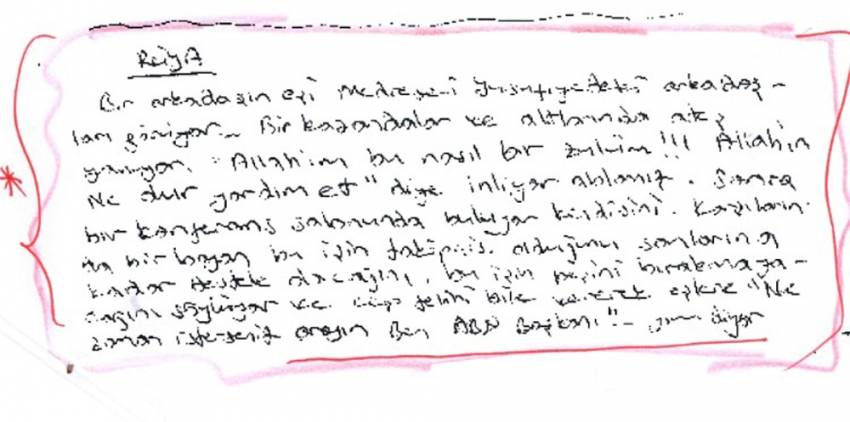 RüyA
Bir arkadaşın eşi Medrese-i Yusufiyedeki arkadaş-
ları görüyor... Bir kazandalar ve altlarında ateş
yanıyor. "Allahım bu nasıl bir zulüm!!! Allahım
Ne olur yardım et" diye inliyor ablamız. Sonra
bir konferans salonunda buluyor kendisini. Karşıların-
da bir bayan bu işin takipçisi olduğunu sonlarına
kadar destek olacağını, bu işin peşini bırakmaya-
cağını söylüyor ve cep telini bile vererek eşlere "Ne
zaman isterseniz arayın Ben ABD Başkanı"- diyor